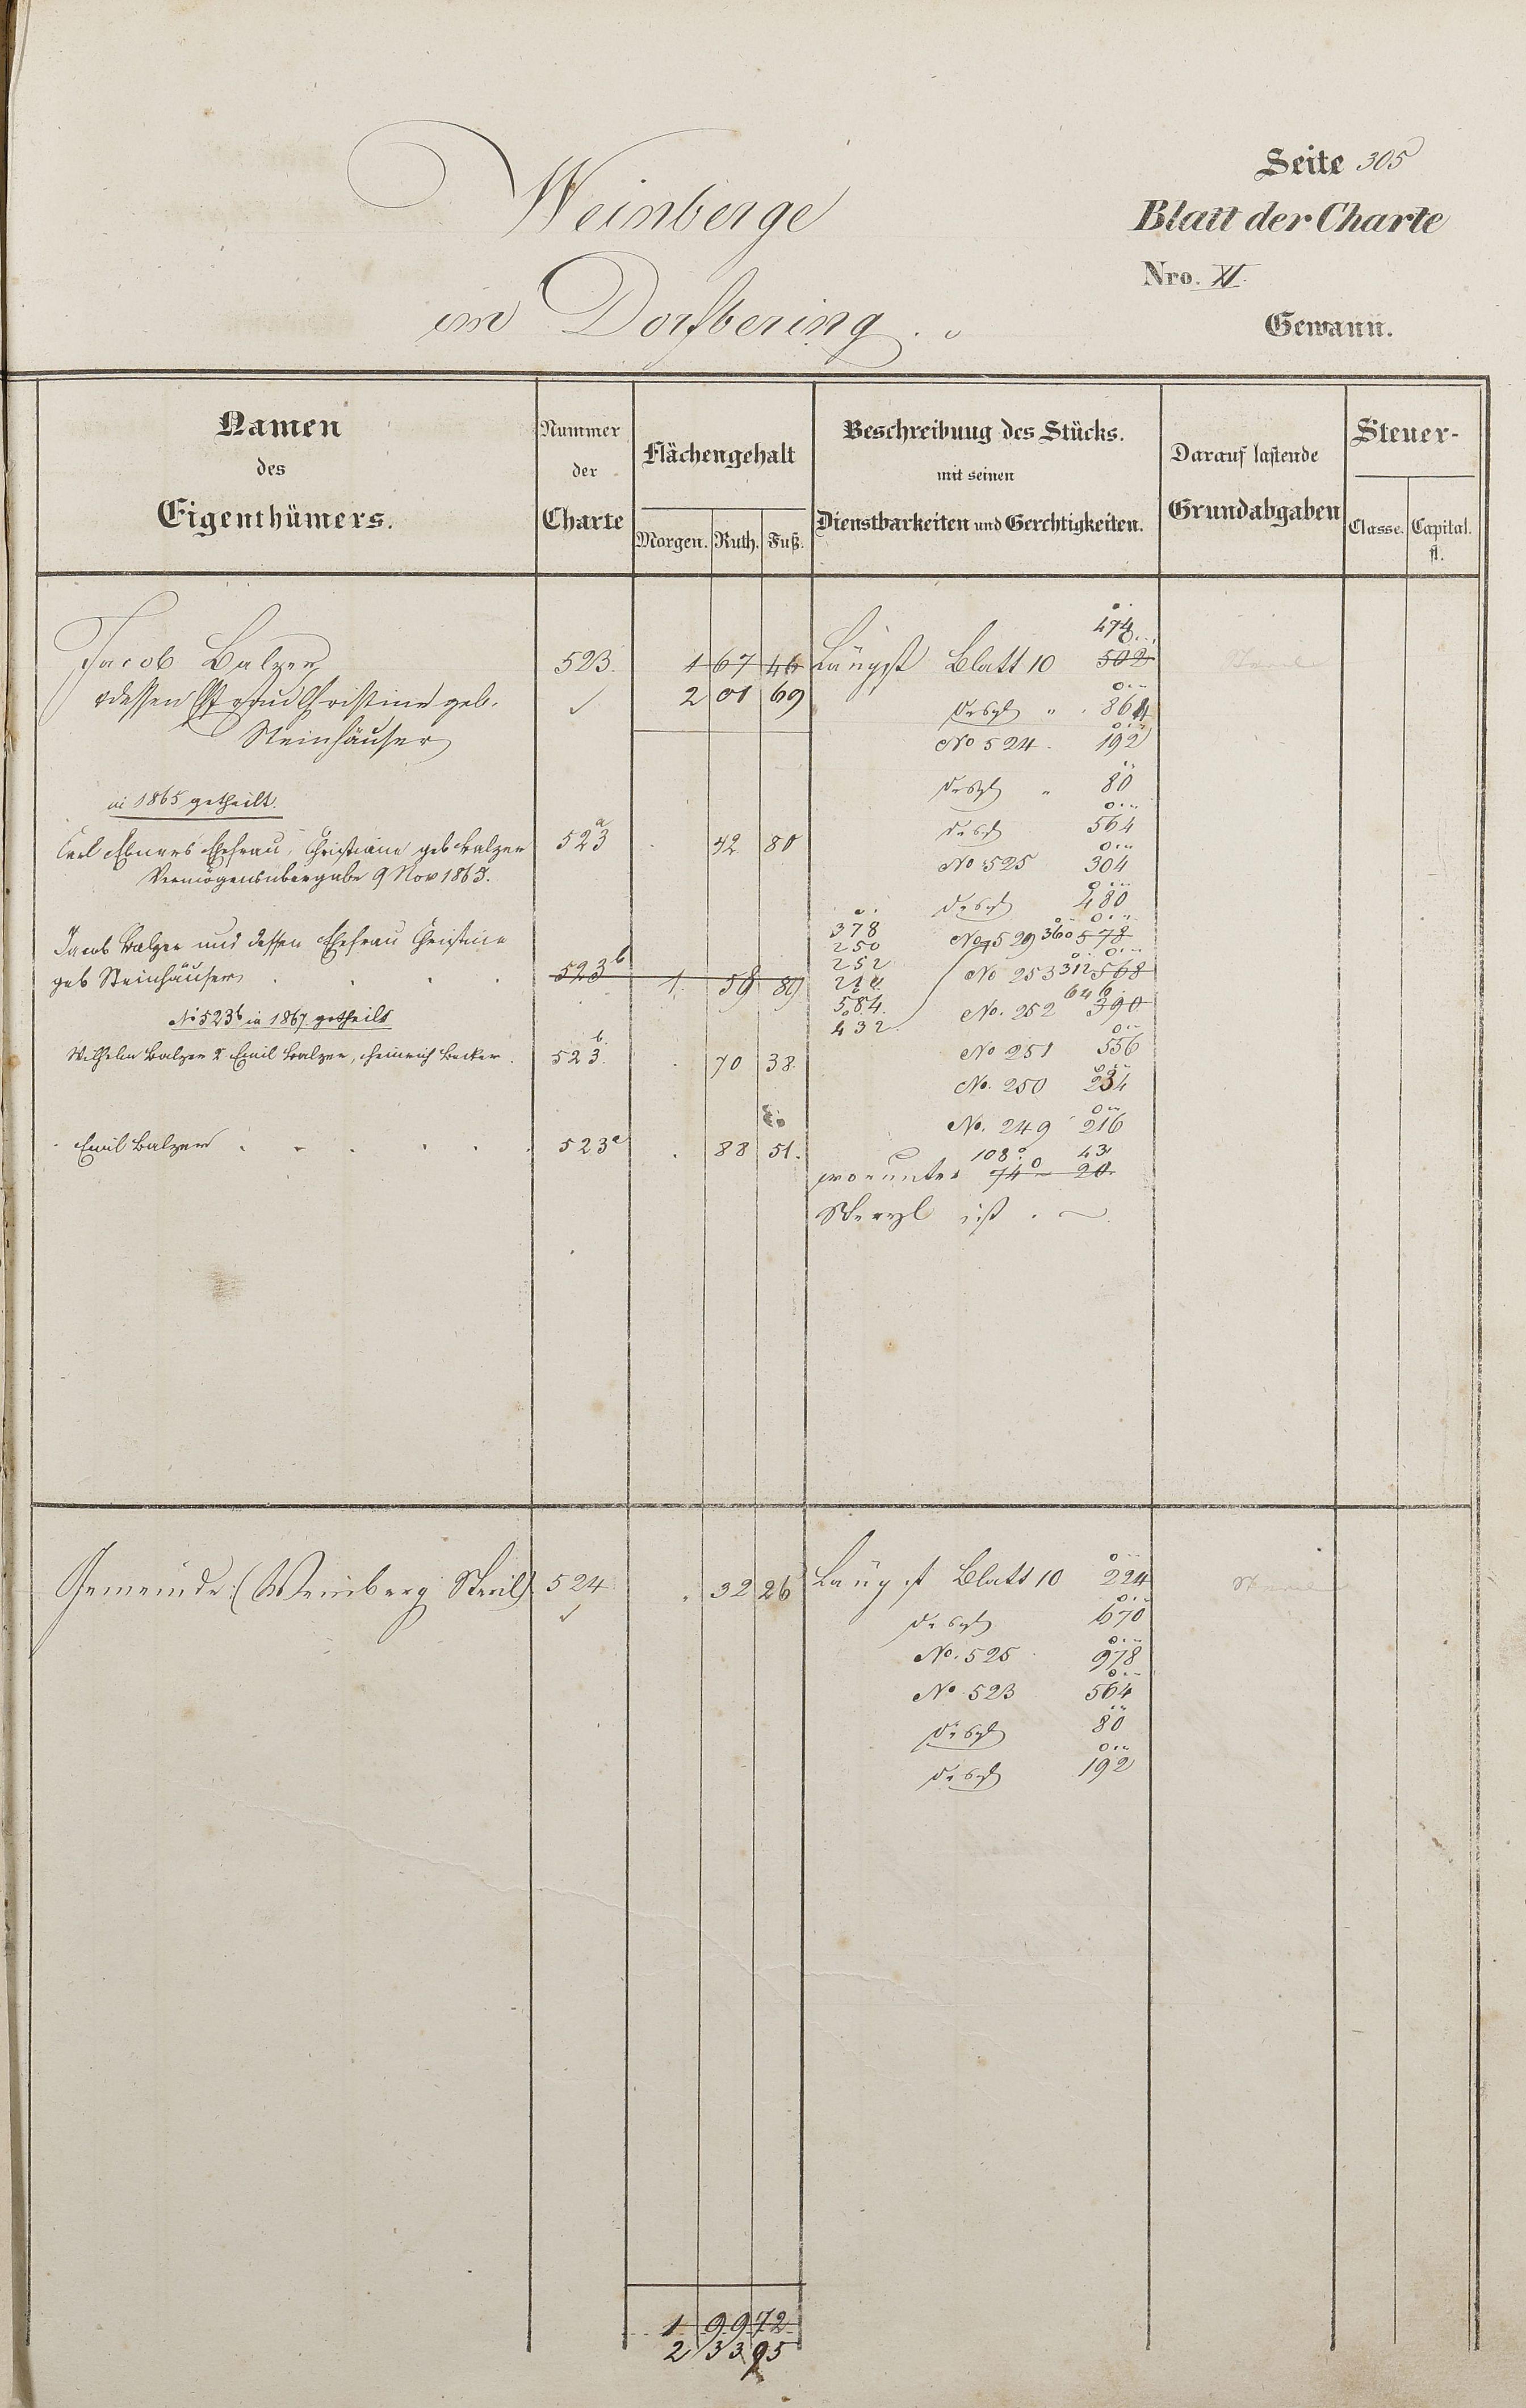 Weinberge
im Dorfbering.
Seite 305
Blatt der Charte
Nro. XI.
Gewann.
Namen
des
Eigenthümers.
Nummer
der
Charte
Flächengehalt
Morgen. Ruth. Fuß.
Beschreibung des Stücks.
mit seinen
Dienstbarkeiten und Gerechtigkeiten.
Darauf lastende
Grundabgaben
Steuer-
Classe. Capital.
fl.
474
Jacob Balzer 523. 1 67 46 Längst Blatt 10 502
dessen Ehefrau Christine geb. 2 01 69
Steinhäuser
desgl " 864
No 524. 192
desgl " 80
in 1865 getheilt.
desgl 564
Carl Ebners Ehefrau, Christiane geb Balzer 523a 42 80
No 525 304
Vermögensübergabe 9 Nov 1865.
desgl 480
378
No 529 360 578
Jacob Balzer und dessen Ehefrau Christine
250
252 No 253 312 568
geb Steinhäuser 523b 1. 58 89
584. No. 252 646 390
No 523b in 1867 getheilt
432
Wilhelm Balzer & Emil Balzer, Heinrich Becker. 523b. 70 38.
No 251 556
No. 250 234
No. 249 216
Emil Balzer 523c 88 51.
108 43
worunter 74 20
Steril ist.
Gemeinde (Weinberg Steril) 524 32 26 Längst Blatt 10 224
desgl 670
No. 525 978
No 523 564
desgl 80
desgl 192
1 99 72
2 33 95